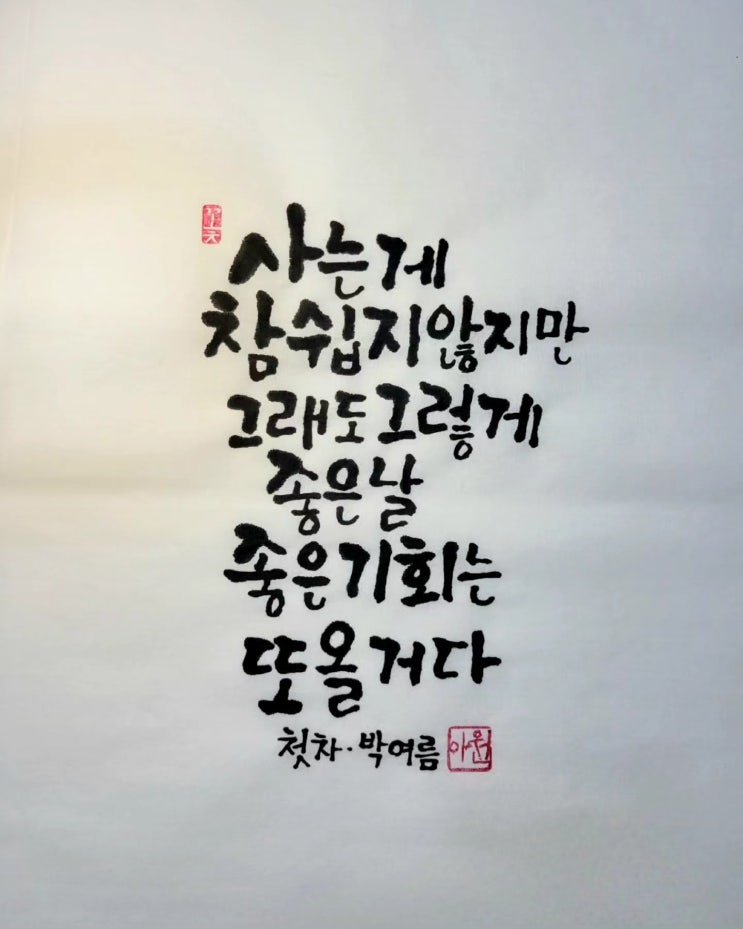 사는게
참 쉽지않지만
그래도 그렇게
좋은날
좋은 기회는
또 올 거다
첫차 · 박여름
아원